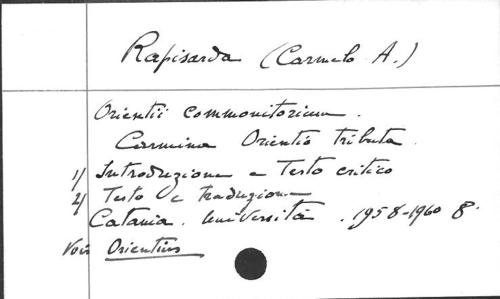 Rapisarda (Carmelo A.)
Orientii commonitorium.
Carmina Orientio tributa.
1/ Introduzione e Testo critico
2/ Testo e traduzione
Catania. Università. 1958-1960 8°
Voir Orientius